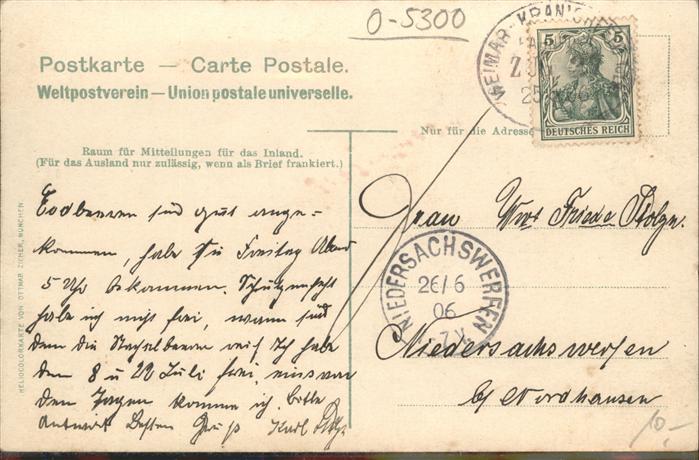 0-5300
WEIMAR-KRANICH
5 5
Z
25
DEUTSCHES REICH
Postkarte — Carte Postale.
Weltpostverein — Union postale universelle.
Nur für die Adresse
Raum für Mitteilungen für das Inland.
(Für das Ausland nur zulässig, wenn als Brief frankiert.)
HELIOCOLORKARTE VON OTTMAR ZIEHER, MÜNCHEN
Erdbeeren sind gut ange=
kommen, habe sie Freitag Abend
5 Uhr bekommen. Schützenfest
habe ich nicht frei, wann sind
denn die Stachelbeeren reif Ich habe
den 8 u 22 Juli frei, eins von
den Tagen komme ich, bitte
Antwort Besten Gruß Karl
Frau Wwe Friede
NIEDERSACHSWERFEN
26/6
06
7
Niedersachswerfen
b/ Nordhausen
10,-